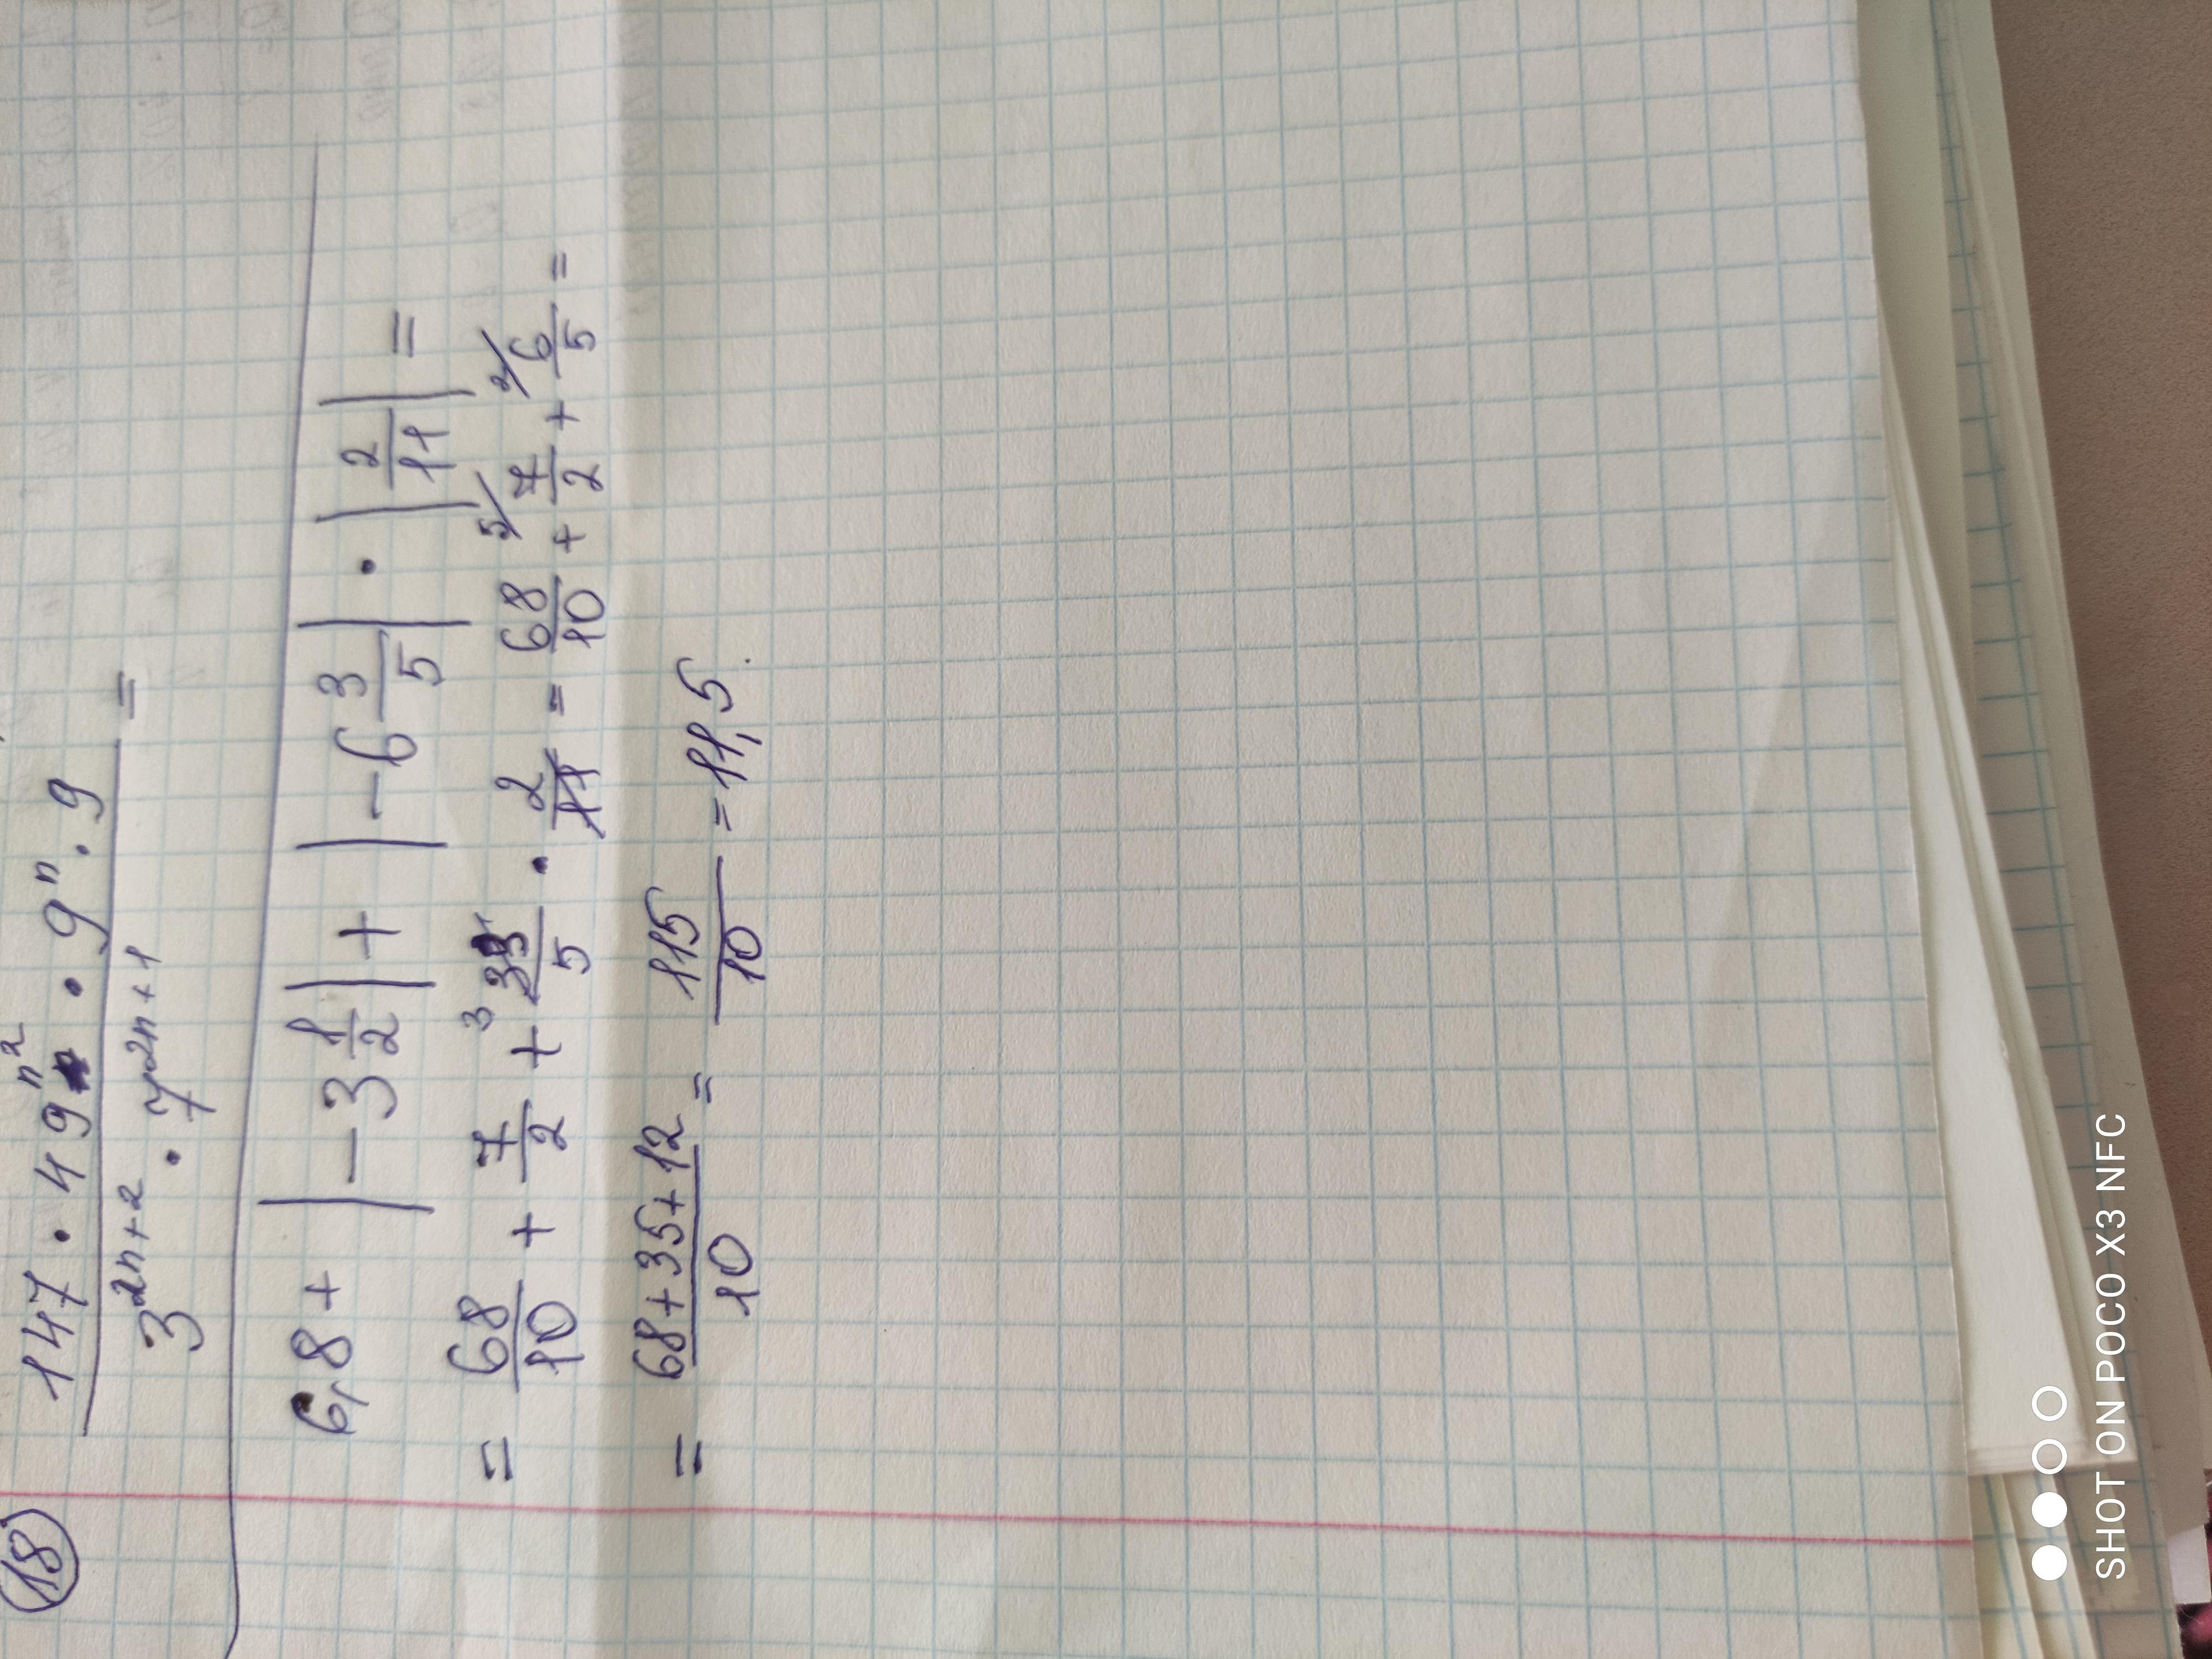 18 147 · 49ⁿ² · 9ⁿ · 9 =
3²ⁿ⁺² · 7²ⁿ⁺¹
6,8 + |-3 1/2| + |-6 3/5| · |2/11| =
= 68/10 + 7/2 + ³33/5 · 2/11 = 68/10 + ⁵/7/2 + ²/6/5 =
= 68+35+12/10 = 115/10 = 11,5.
SHOT ON POCO X3 NFC